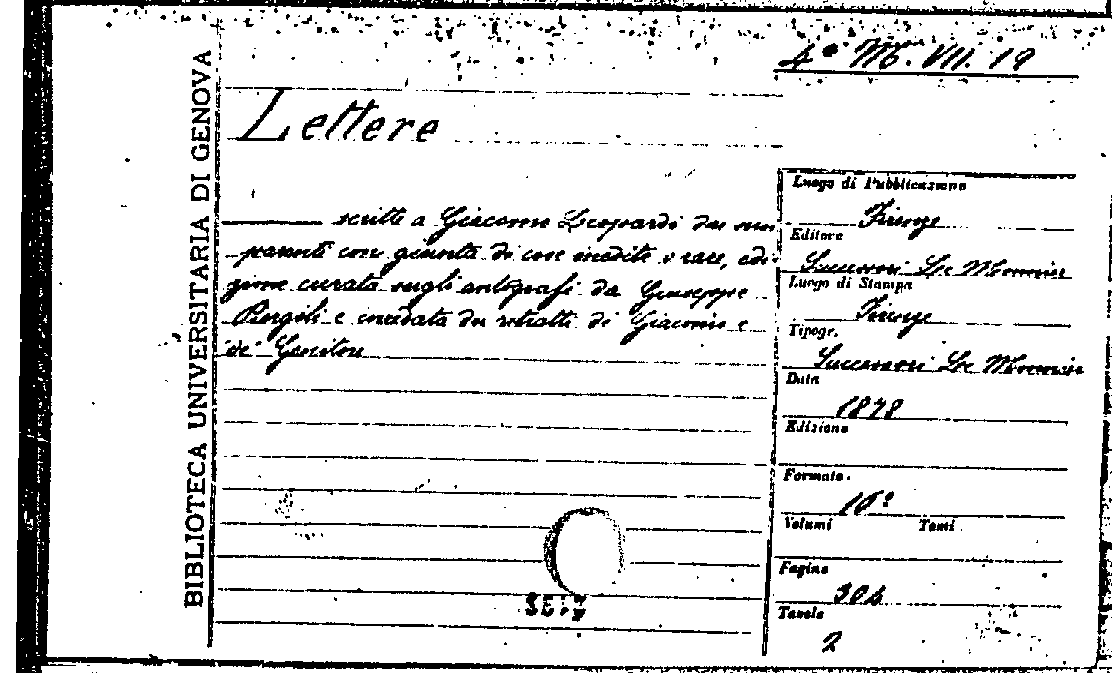 4° M. VII. 19
BIBLIOTECA UNIVERSITARIA DI GENOVA
Lettere
scritte a Giacomo Leopardi da' suoi
parenti con giunta di cose inedite o rare, edi-
zione curata sugli autografi da Giuseppe
Piergili e corredata du ritratti di Giacomo e
de' Genitori
Luogo di Pubblicazione
Firenze
Editore
Successori Le Monnier
Luogo di Stampa
Firenze
Tipogr.
Successori Le Monnier
Data
1878
Edizione
Formato.
16°
Volumi Tomi
Pagine
304
Tavole
2